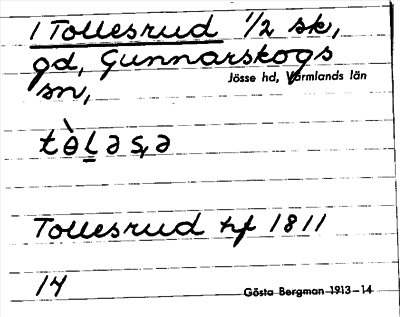 1 Tollesrud 1/2 sk,
gd, Gunnarskogs
Jösse hd, Värmlands län
sn,
tὲl̲əs̨ə
Tollesrud hf 1811
14
Gösta Bergman 1913–14